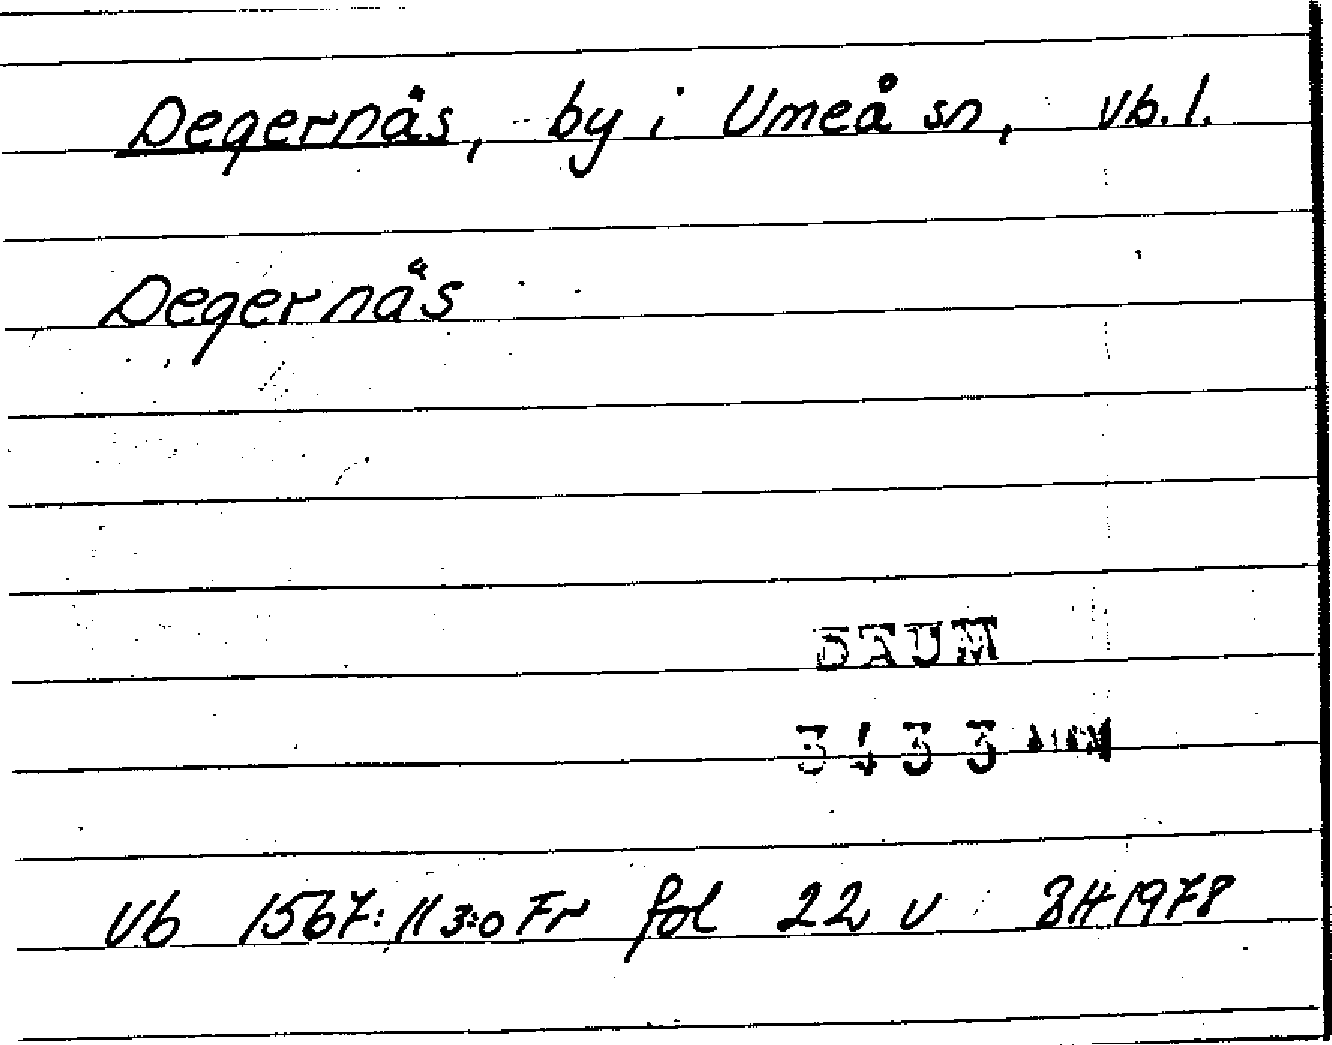 Degernäs, by i Umeå sn, Vb. l.
Degernäs
DAUM
3433
Vb 1567:11 3:o Fr fol 22 v BH 1978